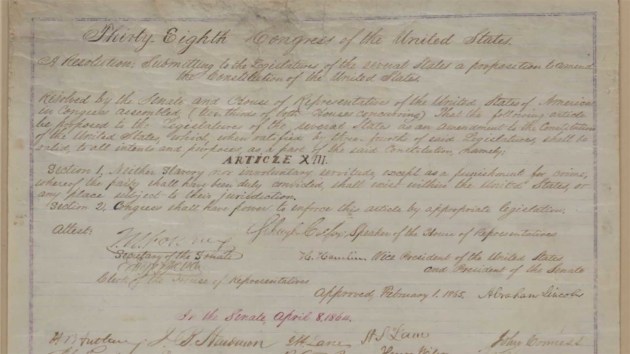 Thirty-Eighth Congress of the United States.
A Resolution: Submitting to the legislatures of the several States a proposition to amend
the Constitution of the United States.
Resolved by the Senate and House of Representatives of the United States of America
in Congress assembled, (two thirds of both Houses concurring) That the following article
be proposed to the legislatures of the several States as an amendment to the Constitution
of the United States, which when ratified by three fourths of said Legislatures, shall be
valid, to all intents and purposes, as a part of the said Constitution, namely:
ARTICLE XIII.
Section 1. Neither slavery nor involuntary servitude, except as a punishment for crime,
whereof the party shall have been duly convicted, shall exist within the United States, or
any place subject to their jurisdiction.
Section 2. Congress shall have power to enforce this article by appropriate legislation.
Attest:
Schuyler Colfax Speaker of the House of Representatives
Secretary of the Senate
H. Hamlin Vice President of the United States,
and President of the Senate
Clerk of the House of Representatives
Approved, February 1. 1865. Abraham Lincoln
In the Senate, April 8. 1864.
J. B. Henderson J H Lane H S Lane John Conness